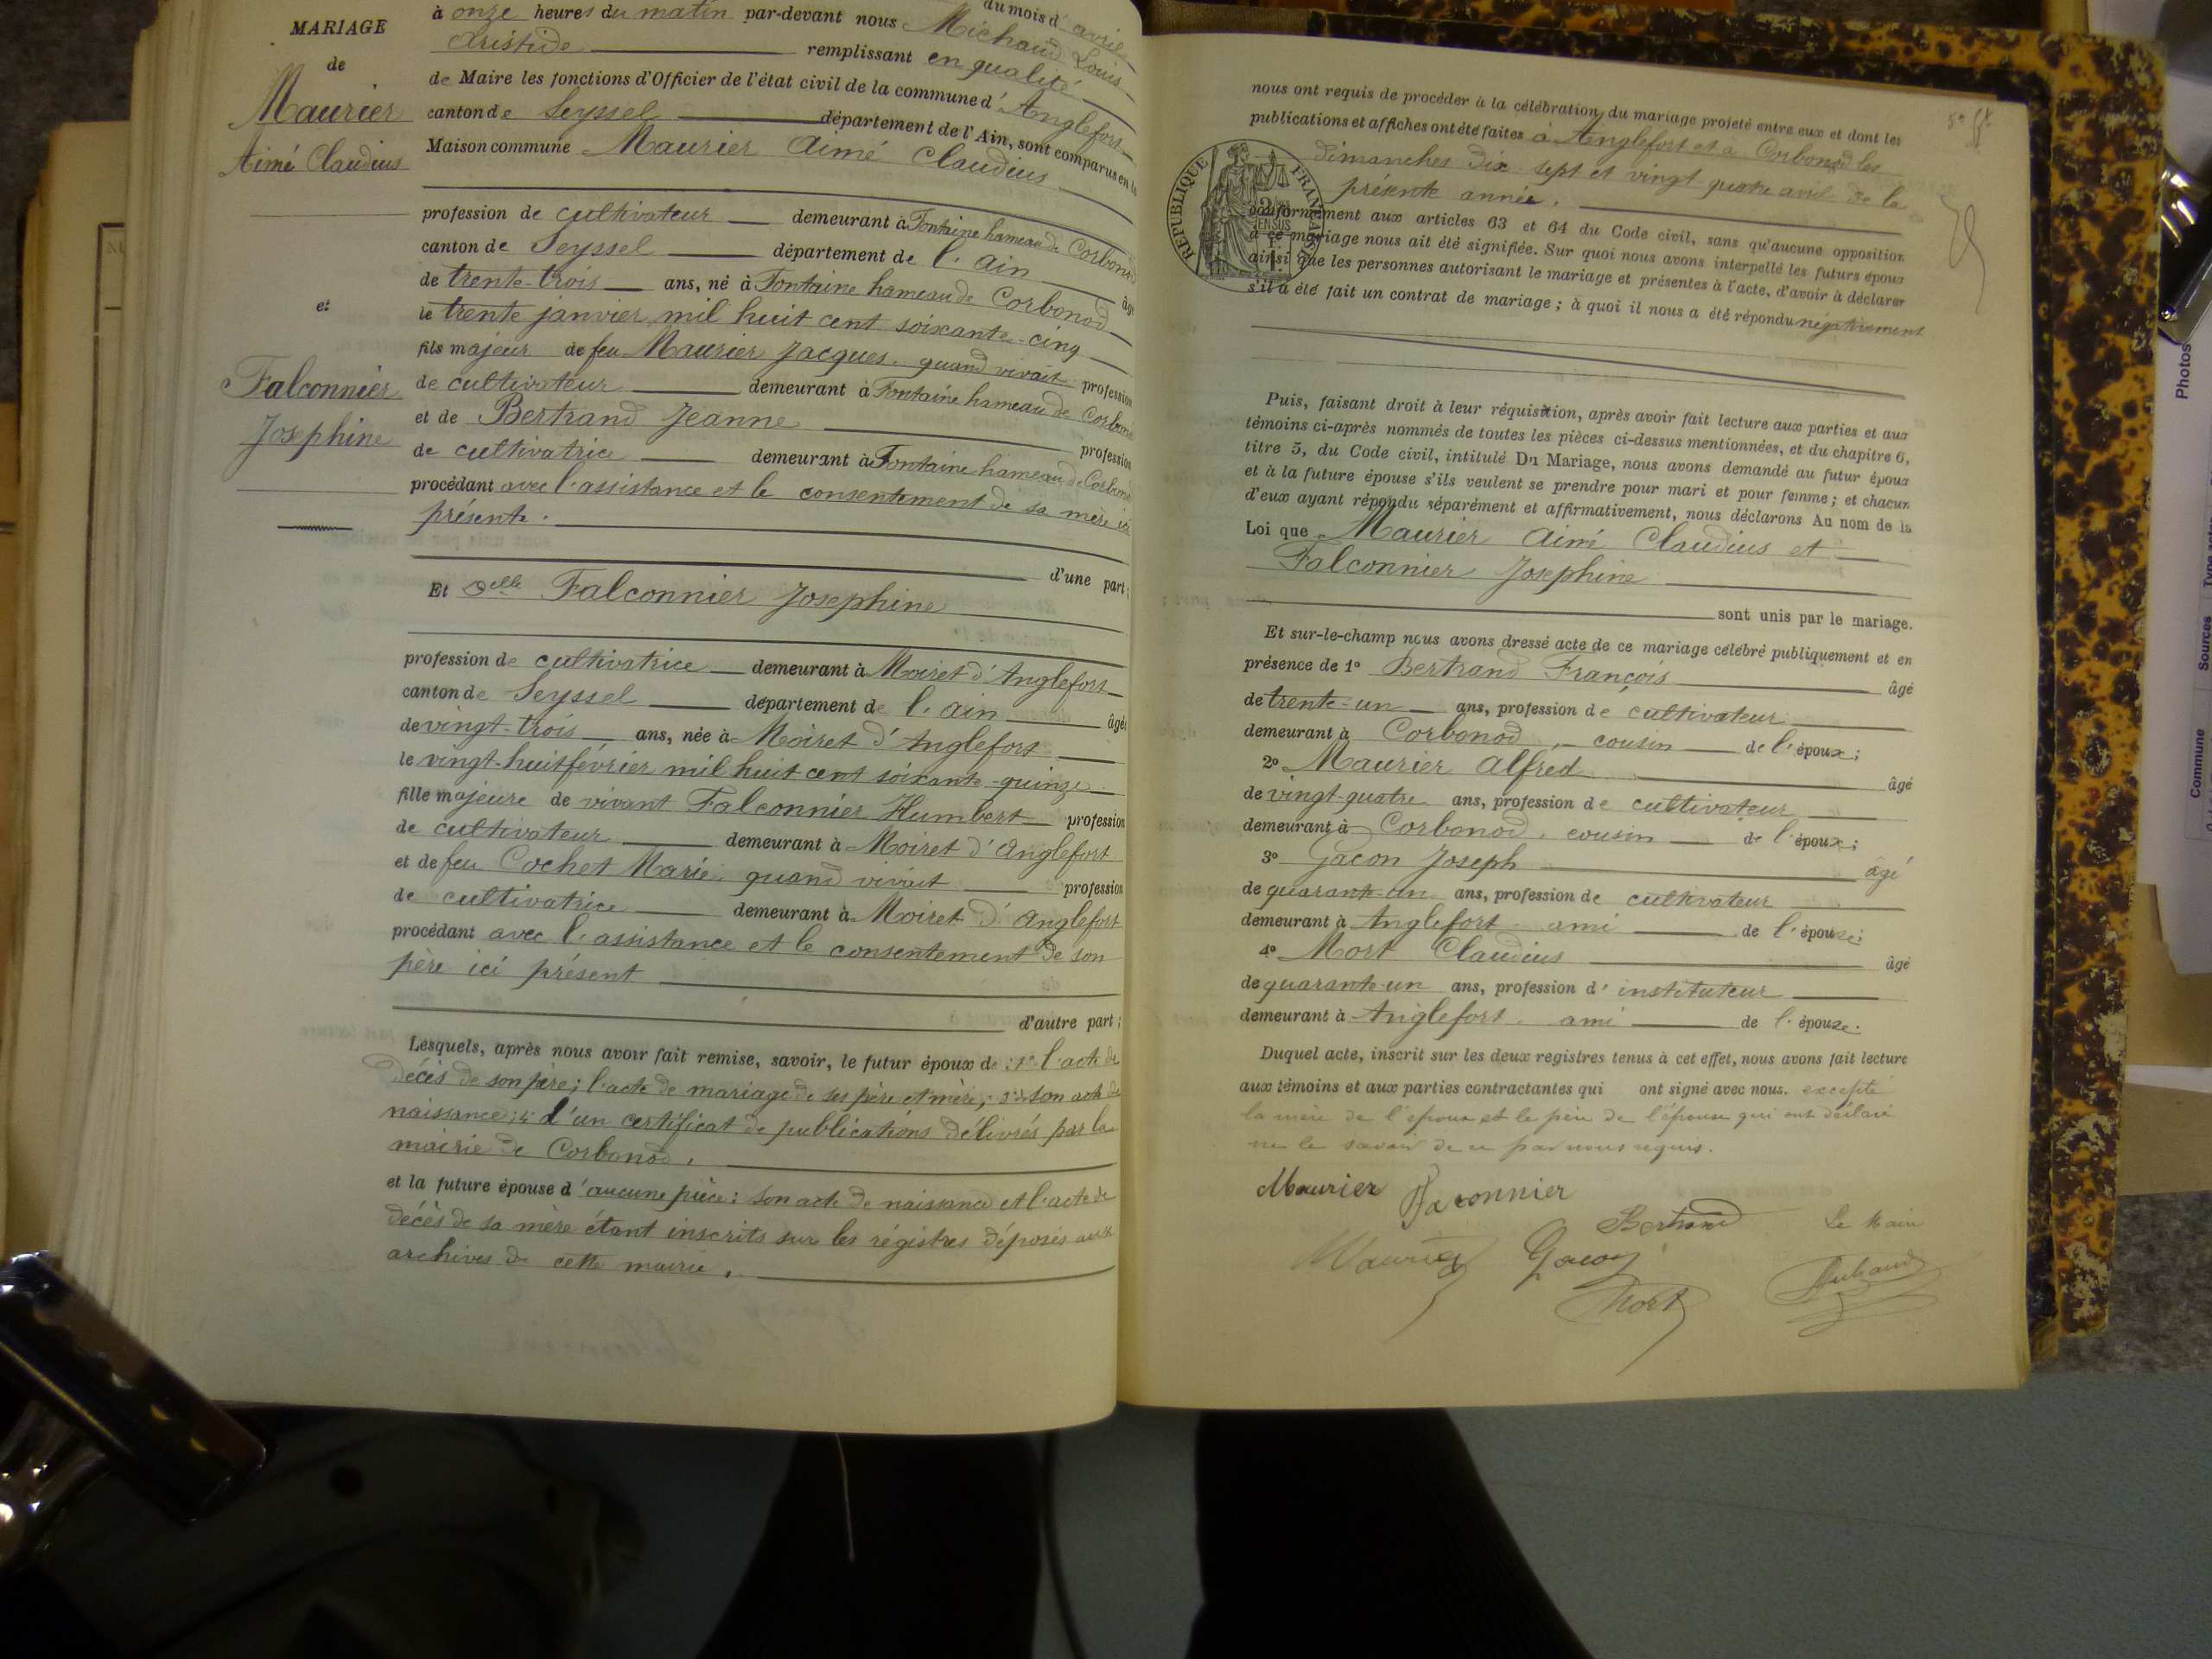 MARIAGE
de
Maurier
Aimé Claudius
et
Falconnier
Josephine
du mois d'avril
à onze heures du matin par-devant nous Michaud Louis
Aristide remplissant en qualité
de Maire les fonctions d'Officier de l'état civil de la commune d'Anglefort
canton de Seyssel département de l'Ain, sont comparus en la
Maison commune Maurier Aimé Claudius
profession de cultivateur demeurant à Fontaine hameau de Corbonod
canton de Seyssel département de l'Ain âgé
de trente-trois ans, né à Fontaine hameau de Corbonod
le trente janvier mil huit cent soixante-cinq
fils majeur de feu Maurier Jacques quand vivait profession
de cultivateur demeurant à Fontaine hameau de Corbonod
et de Bertrand Jeanne profession
de cultivatrice demeurant à Fontaine hameau de Corbonod
procédant avec l'assistance et le consentement de sa mère ici
présente.
d'une part;
Et Delle Falconnier Josephine
profession de cultivatrice demeurant à Moiret d'Anglefort
canton de Seyssel département de l'Ain âgée
de vingt-trois ans, née à Moiret d'Anglefort
le vingt-huit février mil huit cent soixante-quinze
fille majeure de vivant Falconnier Humbert profession
de cultivateur demeurant à Moiret d'Anglefort
et de feu Cochet Marie quand vivait profession
de cultivatrice demeurant à Moiret d'Anglefort
procédant avec l'assistance et le consentement de son
père ici présent
d'autre part;
Lesquels, après nous avoir fait remise, savoir, le futur époux de : 1° l'acte de
décès de son père; l'acte de mariage de ses père et mère; 3° son acte de
naissance; 4° d'un certificat de publications délivrés par la
mairie de Corbonod.
et la future épouse d'aucune pièce: son acte de naissance et l'acte de
décès de sa mère étant inscrits sur les régistres déposés aux
archives de cette mairie.
nous ont requis de procéder à la célébration du mariage projeté entre eux et dont les
publications et affiches ont été faites à Anglefort et à Corbonod les
dimanches dix-sept et vingt quatre avril de la
présente année.
conformément aux articles 63 et 64 du Code civil, sans qu'aucune opposition
à ce mariage nous ait été signifiée. Sur quoi nous avons interpellé les futurs époux
ainsi que les personnes autorisant le mariage et présentes à l'acte, d'avoir à déclarer
s'il a été fait un contrat de mariage; à quoi il nous a été répondu négativement
RÉPUBLIQUE FRANÇAISE
Puis, faisant droit à leur réquisition, après avoir fait lecture aux parties et aux
témoins ci-après nommés de toutes les pièces ci-dessus mentionnées, et du chapitre 6,
titre 5, du Code civil, intitulé Du Mariage, nous avons demandé au futur époux
et à la future épouse s'ils veulent se prendre pour mari et pour femme; et chacun
d'eux ayant répondu séparément et affirmativement, nous déclarons Au nom de la
Loi que Maurier Aimé Claudius et
Falconnier Josephine
sont unis par le mariage.
Et sur-le-champ nous avons dressé acte de ce mariage célébré publiquement et en
présence de 1° Bertrand François âgé
de trente-un ans, profession de cultivateur
demeurant à Corbonod, cousin de l'époux;
2° Maurier Alfred âgé
de vingt-quatre ans, profession de cultivateur
demeurant à Corbonod, cousin de l'époux;
3° Gacon Joseph âgé
de quarante-un ans, profession de cultivateur
demeurant à Anglefort ami de l'épouse;
4° Mort Claudius âgé
de quarante-un ans, profession d'instituteur
demeurant à Anglefort ami de l'épouse.
Duquel acte, inscrit sur les deux registres tenus à cet effet, nous avons fait lecture
aux témoins et aux parties contractantes qui ont signé avec nous. excepté
la mère de l'époux et le père de l'épouse qui ont déclaré
ne le savoir de ce par nous requis.
Maurier Falconnier
Bertrand Le Maire
Maurier Gacon
Mort Michaud
Photos
Sources
Commune